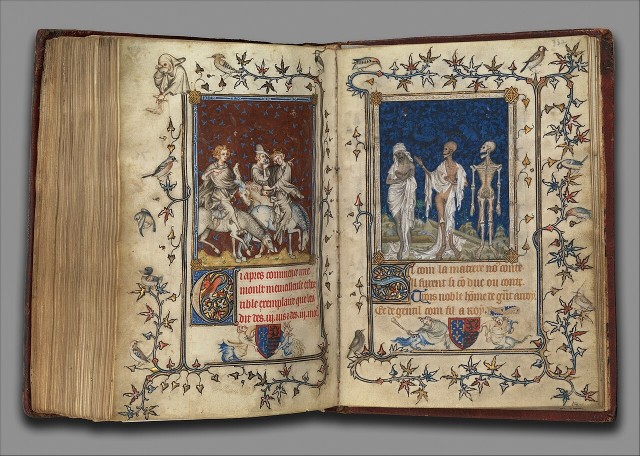 Ci apres commence une
moult merveilleuse et hor
rible exemplaire que len
dit des .iij. vis et des .iij. mors
Si com la matiere no conte
Il furent si cō duc ou conte
Trois noble hōme de arroy
Et de gentil com fil a roy